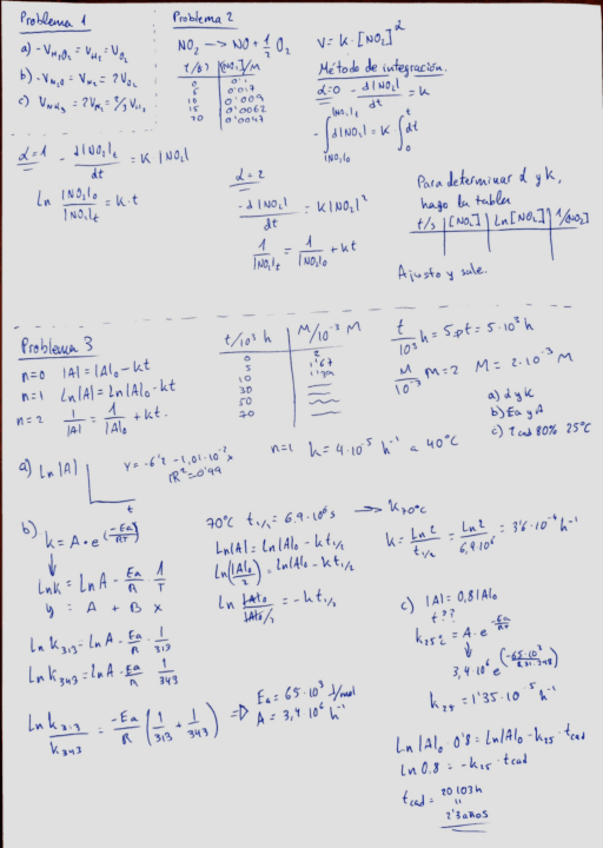 Problema 1
a) -V_H₂O₂ = V_H₂ = V_O₂
b) -V_N₂O = V_N₂ = 2V_O₂
c) V_NH₃ = 2V_N₂ = 2/3 V_H₂
Problema 2
NO₂ -> NO + 1/2 O₂
V = k · [NO₂]^α
t(s) | [NO₂]/M
0 | 0'1
5 | 0'017
10 | 0'009
15 | 0'0062
20 | 0'0047
Método de integración.
α=0 - d[NO₂]/dt = k
- ∫ d[NO₂] = k ∫ dt
[NO₂]t t
[NO₂]₀ 0
α=1 - d[NO₂]t/dt = k [NO₂]
Ln [NO₂]₀/[NO₂]t = k·t
α=2
-d[NO₂]/dt = k[NO₂]²
1/[NO₂]t = 1/[NO₂]₀ + kt
Para determinar α y k,
hago la tabla
t/s | [NO₂] | Ln[NO₂] | 1/[NO₂]
Ajusto y sale.
Problema 3
n=0 [A] = [A]₀ - kt
n=1 Ln[A] = Ln[A]₀ - kt
n=2 1/[A] = 1/[A]₀ + kt.
t/10³ h | M/10⁻³ M
0 | 2
5 | 1'67
10 | 1'39
30
50
70
t/10³ h = 5 → t = 5·10³ h
M/10⁻³ M = 2 M = 2·10⁻³ M
a) α y k
b) Ea y A
c) t cad 80% 25ºC
a) Ln[A]
t
Y = -6'2 - 1,01·10⁻² x
R² = 0'99
n=1 k = 4·10⁻⁵ h⁻¹ a 40ºC
b) k = A·e^(-Ea/RT)
Lnk = LnA - Ea/R · 1/T
y = A + B x
Ln k₃₁₃ = LnA - Ea/R · 1/313
Ln k₃₄₃ = LnA - Ea/R · 1/343
Ln k₃₁₃/k₃₄₃ = -Ea/R (1/313 + 1/343) => Ea = 65·10³ J/mol
A = 3,4·10⁶ h⁻¹
70ºC t₁/₂ = 6.9·10⁶ s → k₇₀ºC
Ln[A] = Ln[A]₀ - kt₁/₂
Ln([A]₀/2) = Ln[A]₀ - kt₁/₂
Ln [A]₀/[A]₀/2 = -kt₁/₂
k = Ln2/t₁/₂ = Ln2/6,9·10⁶ = 3'6·10⁻⁴ h⁻¹
c) [A] = 0,8[A]₀
t??
k₂₅ = A·e^(-Ea/RT)
3,4·10⁶ e^(-65·10³/8'31·298)
k₂₅ = 1'35·10⁻⁵ h⁻¹
Ln[A]₀·0'8 = Ln[A]₀ - k₂₅·tcad
Ln0.8 = -k₂₅·tcad
tcad = 20103h
"
2'3 años